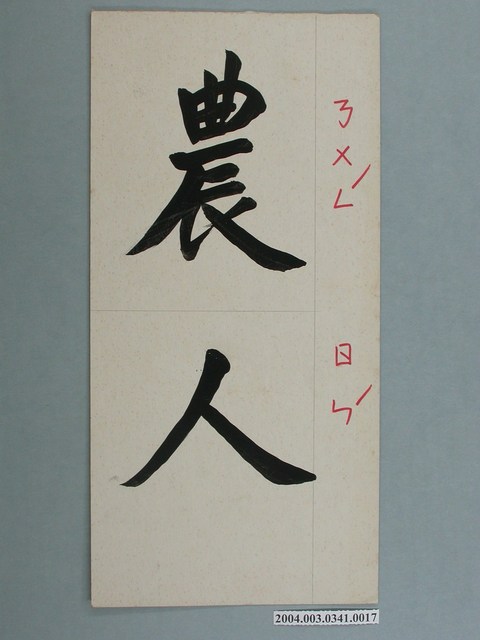 農人
ㄋㄨㄥˊ
ㄖㄣˊ
2004.003.0341.0017